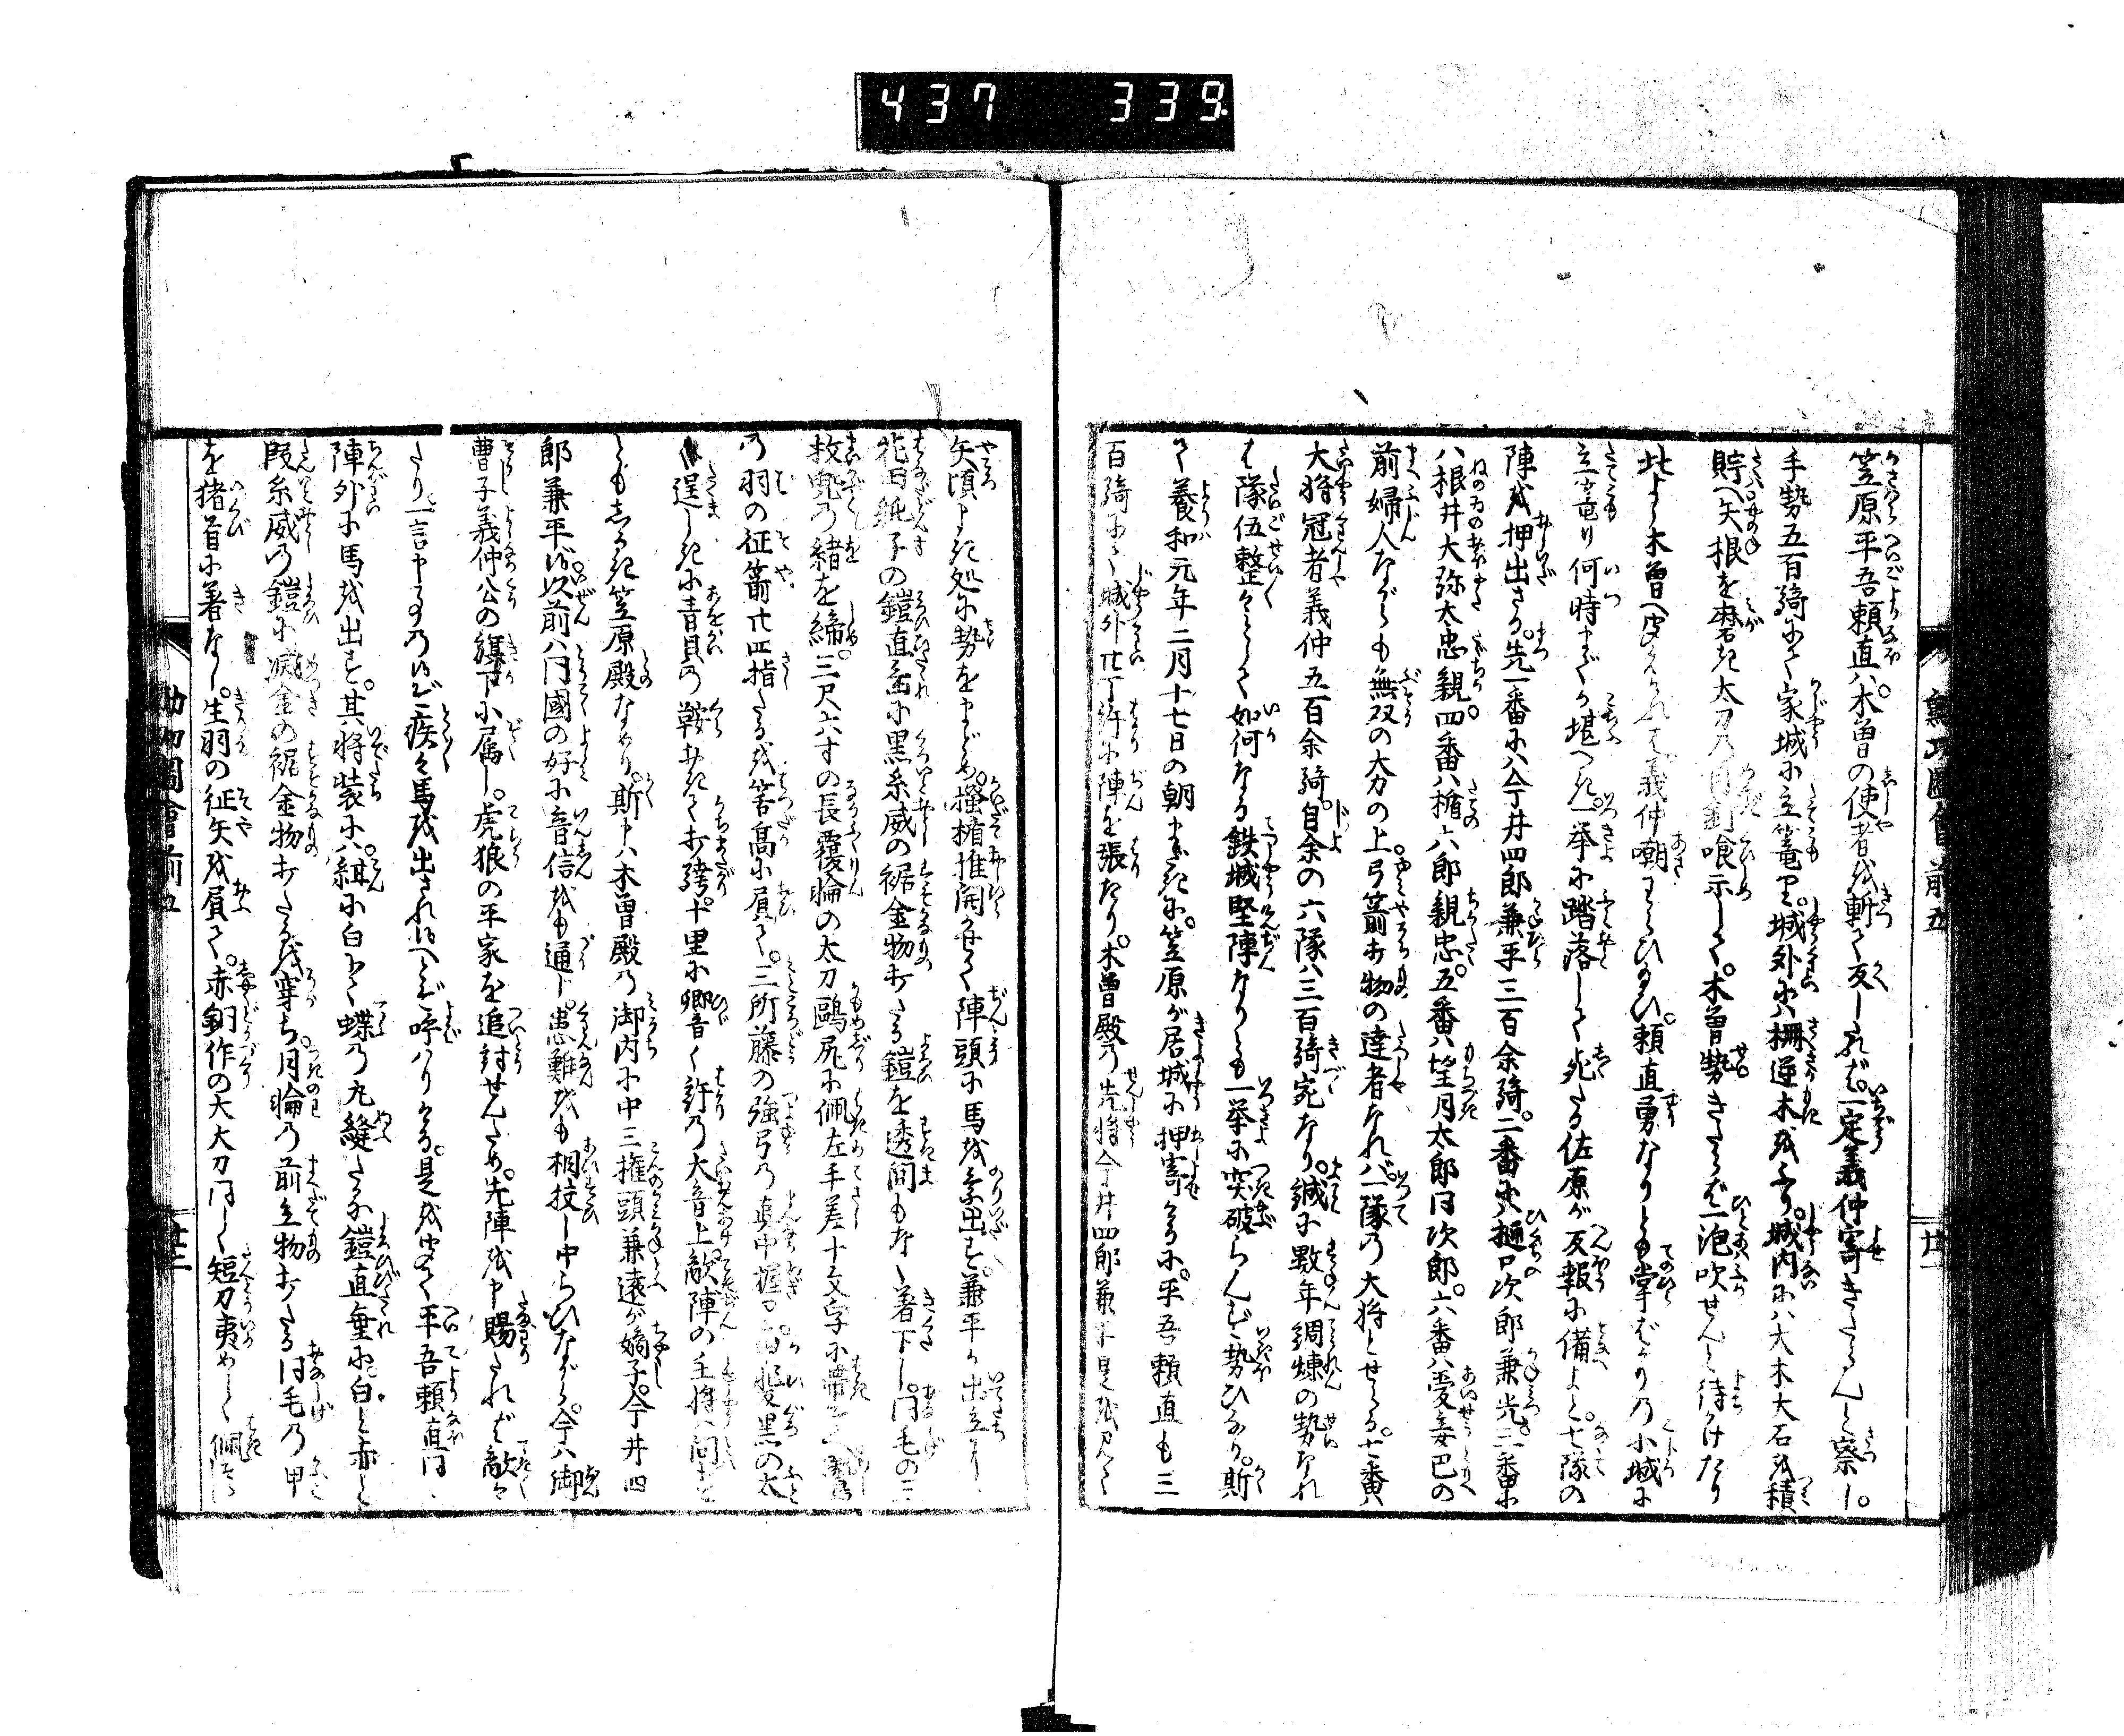 437 339
勲功圖會前五
廿一
笠原平吾頼直ハ。木曽の使者を斬て反しれば。一定義仲寄きたらんと察し。
手勢五百騎にて家城に立篭り。城外にハ柵逆木をふり。城内にハ大木大石を積
貯へ矢根を磨き太刀の目釘喰示して。木曽勢きたらば一泡吹せんと待かけたり
此よし木曽へ聞えけれバ義仲嘲わらひ給ひ。頼直勇なりとも掌ばかりの小城に
立篭り何時までか堪へき。一挙に踏落して死たる佐原が反報に備よと。七隊の
陣を押出さる。先一番にハ今井四郎兼平三百余騎。二番にハ樋口次郎兼光。三番に
ハ根井大弥太忠親。四番ハ楯六郎親忠。五番ハ望月太郎同次郎。六番ハ愛妾巴の
前婦人ながらも無双の大力の上。弓箭打物の達者なれバ一隊の大将とせらる。七番ハ
大将冠者義仲五百余騎。自余の六隊ハ三百騎宛なり。誠に数年調煉の勢なれ
ば隊伍整々として如何なる鉄城堅陣なりとも一挙に突破らんず勢ひなり。斯
て養和元年二月十七日の朝まだきに。笠原が居城に押寄けるに。平吾頼直も三
百騎にて城外廿丁許に陣を張たり。木曽殿の先将今井四郎兼平是を見て
矢頃よき処に勢をまとめ。掻楯推開かせて陣頭に馬を乗出す。兼平が出立にハ
花田純子の鎧直垂に黒糸威の裾金物打たる鎧を透間もなく著下し。同毛の三
枚兜の緒を締。三尺六寸の長覆輪の太刀鴎尻に佩左手差十文字に帯
の羽の征箭廿四指たるを筈高に屓て。三所藤の強弓の真中握り 黒の太
逞しきに青貝の鞍おきて打跨。十里に郷音く許の大音上敵陣の主将ハ問ず
ともしるき笠原殿なめり。斯申ハ木曽殿の御内に中三権頭兼遠が嫡子。今井四
郎兼平ぞ以前ハ同國の好に音信をも通じ。患難をも相扶し中らひながら。今ハ御
曹子義仲公の旗下に属し。虎狼の平家を追討せんため。先陣を申賜たれば敵々
たり一言申事の候ぞ疾々馬を出され候へとぞ呼ハりける。是を聞て平吾頼直同く
陣外に馬を出す。其将装にハ。紺に白にて蝶の丸縫たる鎧直垂に。白と赤と
段糸威の鎧に滅金の裾金物打たるを穿ち。月輪の前立物打たる同毛の甲
を猪首に著なし。生羽の征矢を屓て。赤銅作の大大刀同しく短刀夷めしく佩
勲功圖會前五
廿二